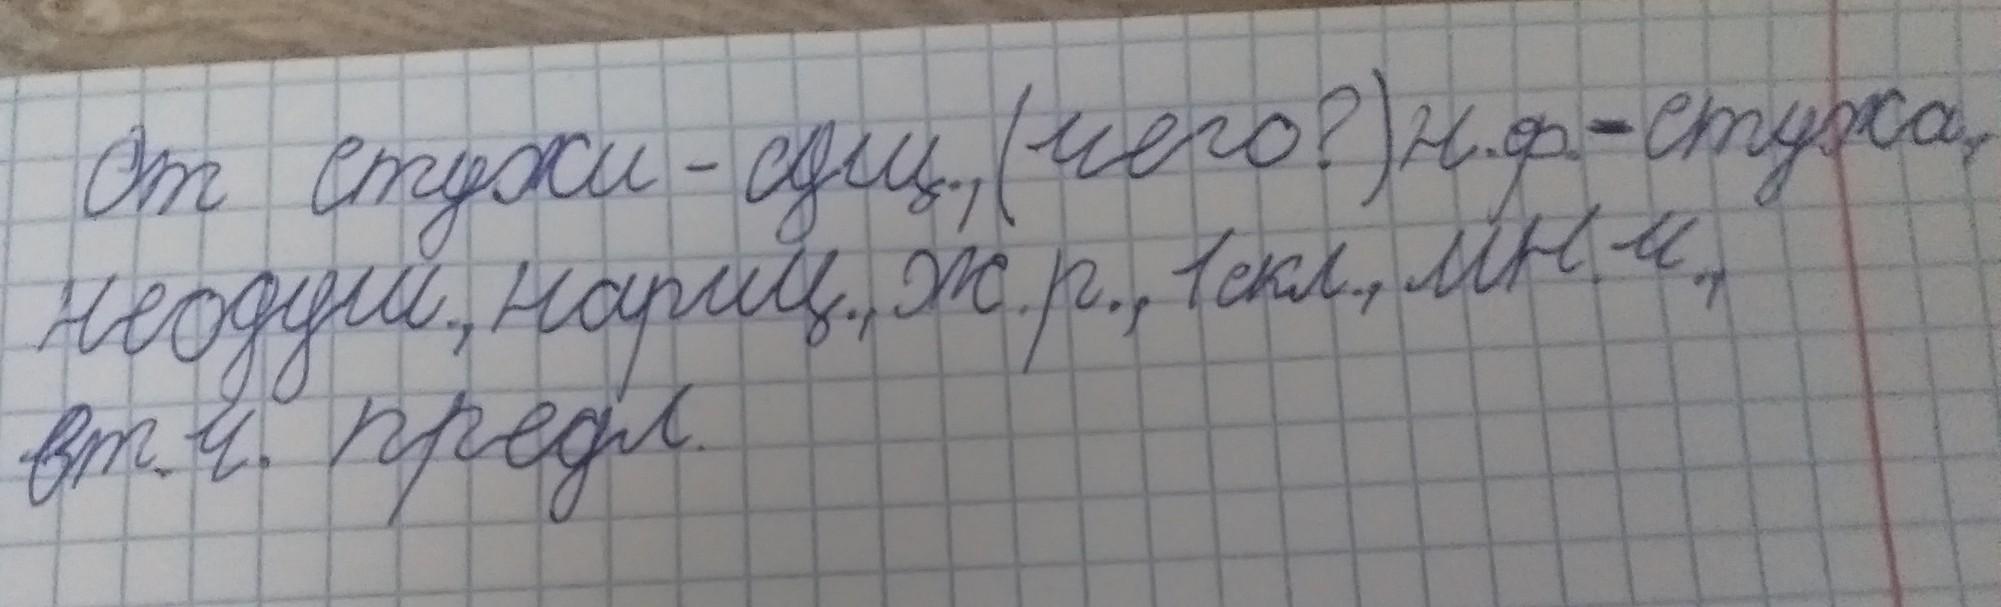 От стужи - сущ., (чего?) н.ф. - стужа,
неодуш., нариц., ж.р., 1скл., мн.ч.,
вт.ч. предл.